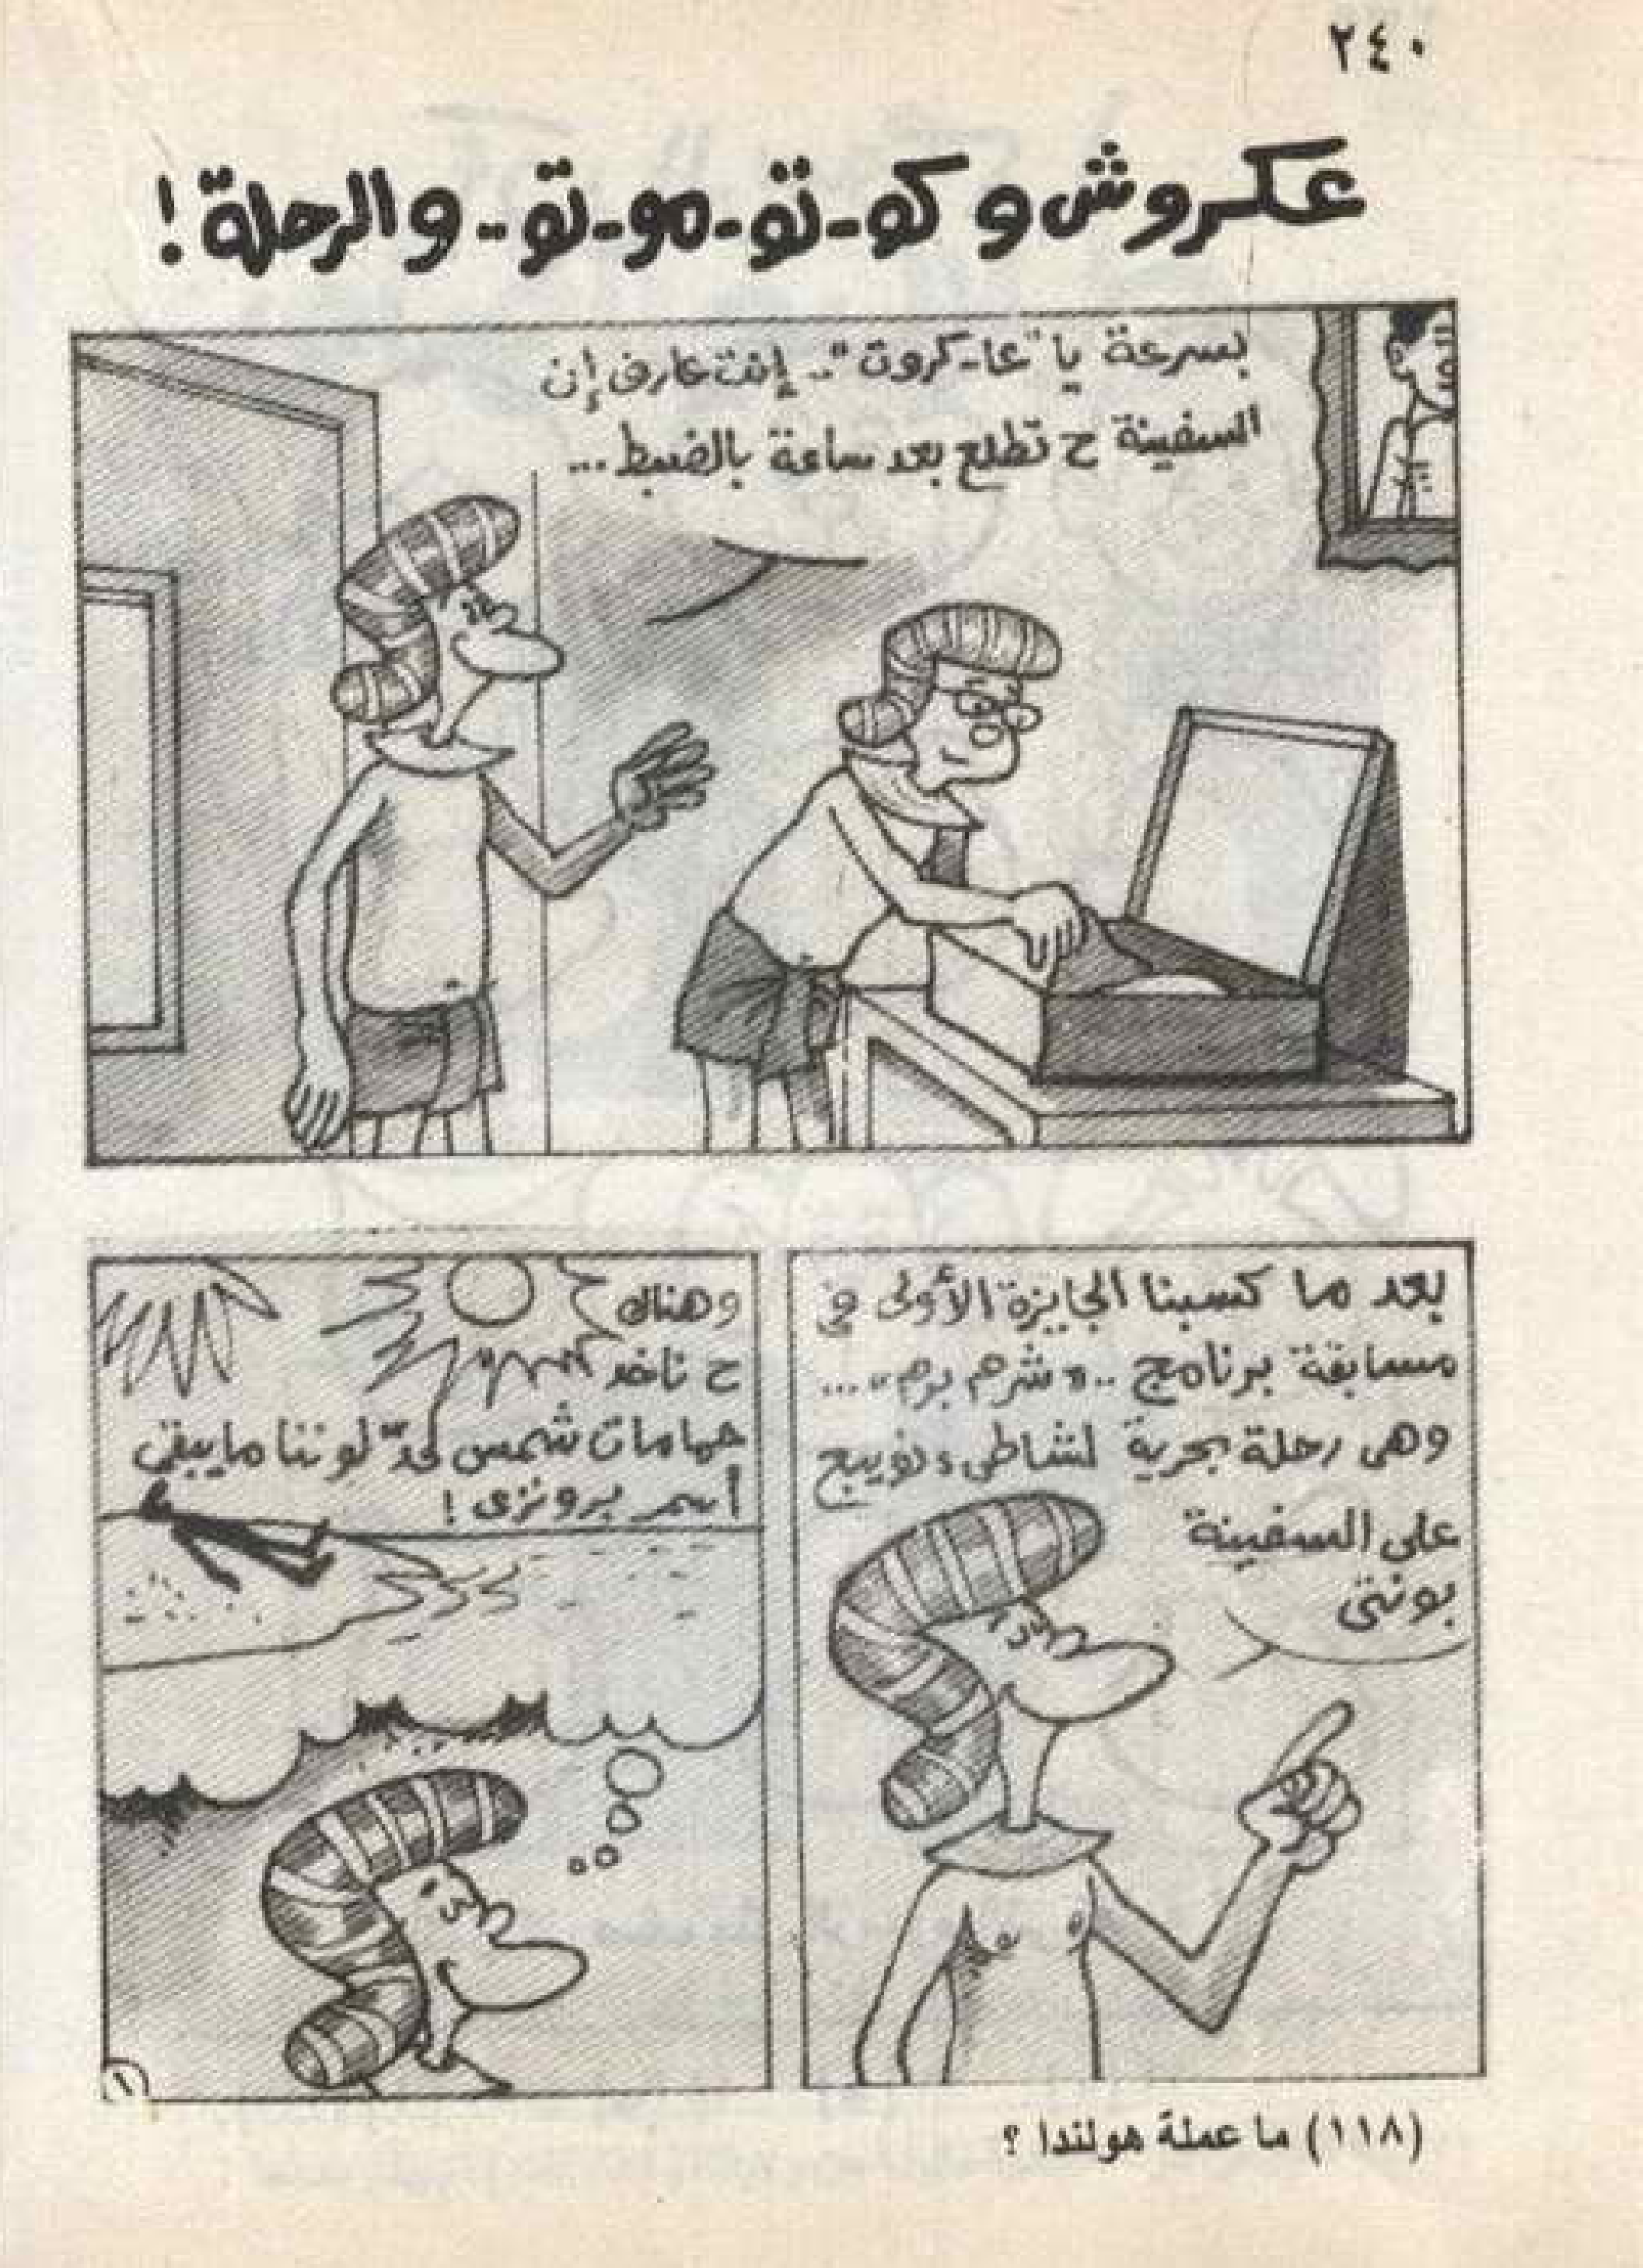 ٢٤٠
عكروش و كو - تو - مو - تو .. والرحلة !
بسرعة يا "عا-كروت" .. إنت عارف إن
السفينة ح تطلع بعد ساعة بالضبط ...
بعد ما كسبنا الجايزة الأولى في
مسابقة برنامج .. « شرم برم » ...
وهى رحلة بحرية لشاطىء نويبع
على السفينة
بونتى
وهناك
ح ناخد
حمامات شمس لحدّ لوننا ما يبقى
أسمر برونزى !
١
(١١٨) ما عملة هولندا ؟